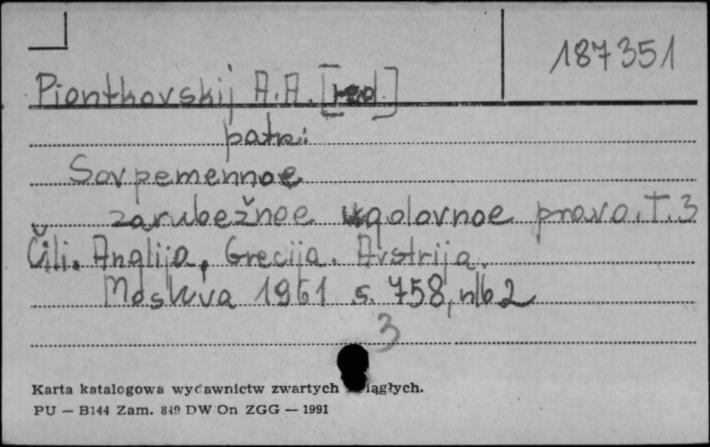 187351
Piontkovskij A.A. [red.]
patrz:
Sovpemennoe
zarubežnoe ugolovnoe pravo. T. 3
Čili. Anglija, Grecija. Avstrija.
Moskva 1961 s. 758, nlb 2
3
Karta katalogowa wydawnictw zwartych ciągłych.
PU — B144 Zam. 849 DW On ZGG — 1991